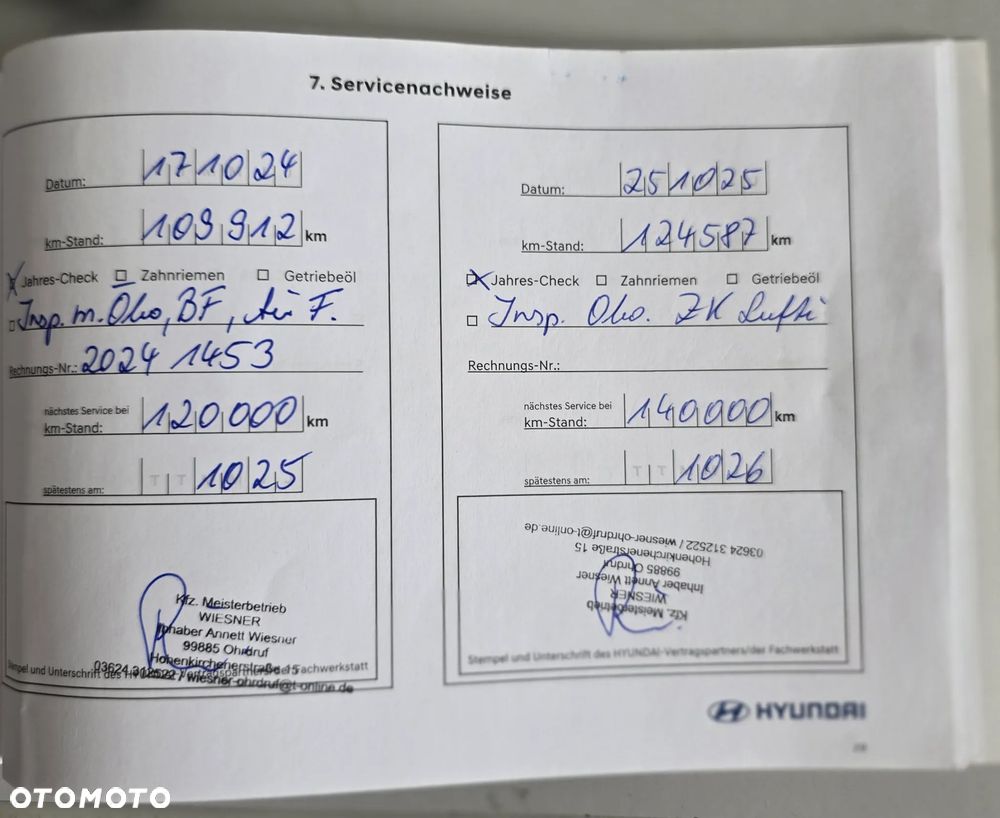 7. Servicenachweise
Datum: 17 10 24
km-Stand: 109 912 km
Jahres-Check Zahnriemen Getriebeöl
Insp. m. Öko, BF, F.
Rechnungs-Nr.: 2024 1453
nächstes Service bei
km-Stand: 120000 km
spätestens am: T T 10 25
Kfz. Meisterbetrieb
WIESNER
Inhaber Annett Wiesner
99885 Ohrdruf
Hohenkirchenerstraße 15
03624 312522 / wiesner-ohrdruf@t-online.de
Stempel und Unterschrift des HYUNDAI-Vertragspartners/der Fachwerkstatt
Datum: 25 10 25
km-Stand: 124587 km
Jahres-Check Zahnriemen Getriebeöl
Insp. Öko. ZK Lufti
Rechnungs-Nr.:
nächstes Service bei
km-Stand: 140000 km
spätestens am: T T 10 26
Kfz. Meisterbetrieb
WIESNER
Inhaber Annett Wiesner
99885 Ohrdruf
Hohenkirchenerstraße 15
03624 312522 / wiesner-ohrdruf@t-online.de
Stempel und Unterschrift des HYUNDAI-Vertragspartners/der Fachwerkstatt
HYUNDAI
OTOMOTO